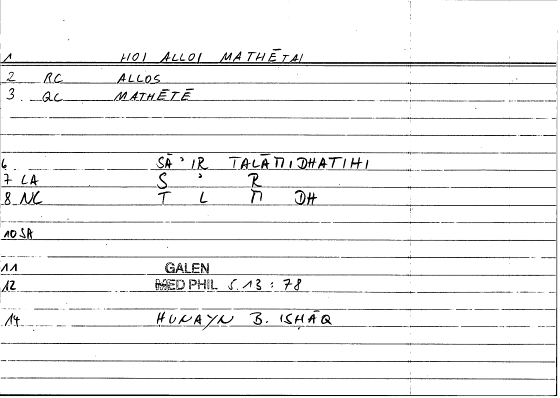 1 HOI ALLOI MATHĒTAI
2 RC ALLOS
3 QC MATHĒTĒ
6 SĀʾIR TALĀMIDHATIHI
7 LA S ʾ R
8 NC T L M DH
10 SA
11 GALEN
12 MED PHIL 5.13 : 78
14 ḤUNAYN B. ISḤĀQ